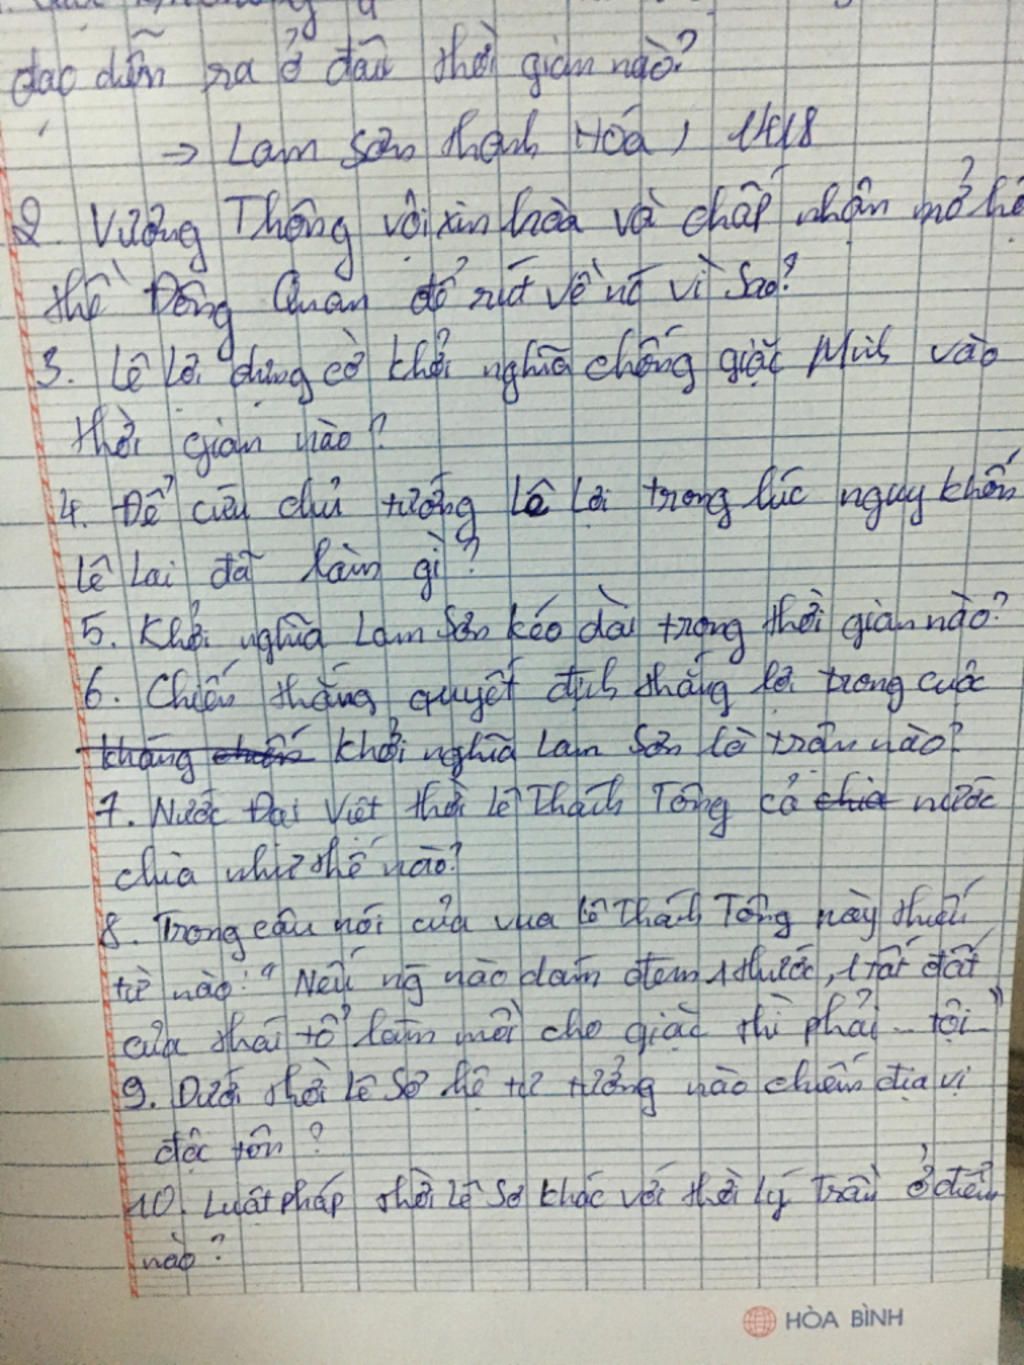 đạo diễn ra ở đâu thời gian nào?
→ Lam Sơn Thanh Hóa, 1418
2. Vương Thông vội xin hòa và chấp nhận mở hội
thề Đông Quan để rút về nc vì sao?
3. Lê Lợi dựng cờ khởi nghĩa chống giặc Minh vào
thời gian nào?
4. Để cứu chủ tướng Lê Lợi trong lúc nguy khốn
Lê Lai đã làm gì?
5. Khởi nghĩa Lam Sơn kéo dài trong thời gian nào?
6. Chiến thắng quyết định thắng lợi trong cuộc
kháng chiến khởi nghĩa Lam Sơn là trận nào?
7. Nước Đại Việt thời Lê Thánh Tông cả chia nước
chia như thế nào?
8. Trong câu nói của vua Lê Thánh Tông này thiếu
từ nào: "Nếu ng nào dám đem 1 thước, 1 tấc đất
của thái tổ làm mồi cho giặc thì phải - tội -"
9. Dưới thời Lê Sơ hệ tư tưởng nào chiếm địa vị
độc tôn?
10. Luật pháp thời Lê Sơ khác với thời Lý Trần ở điểm
nào?
HÒA BÌNH